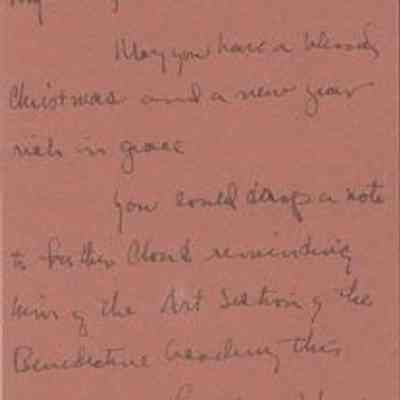 May you have a blessed
Christmas and a new year
rich in grace
You could drop a note
to Father Cloud reminding
him of the Art Section of the
Benedictine Academy this